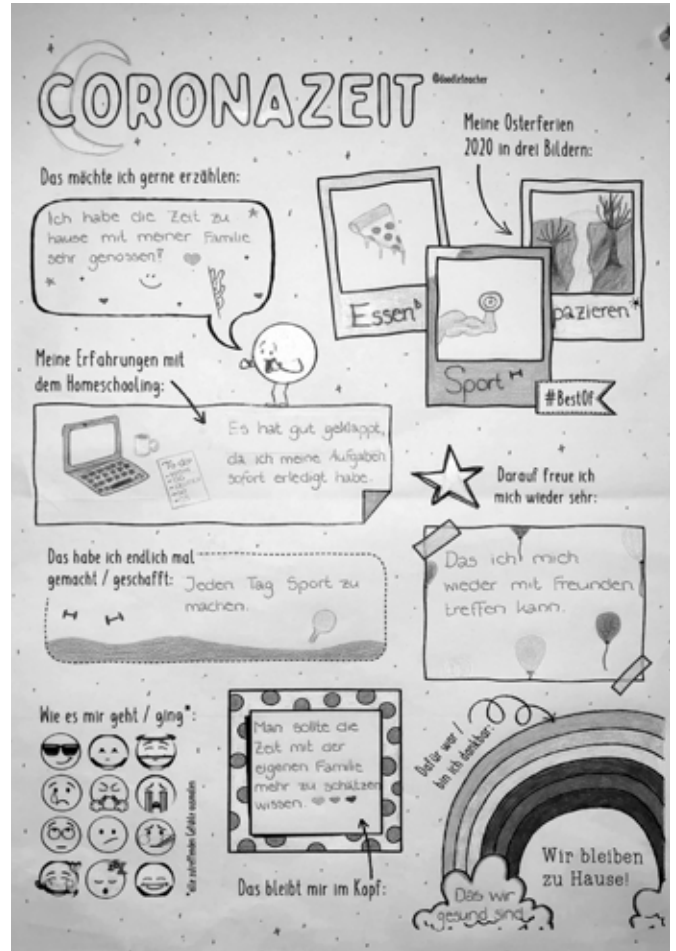 CORONAZEIT
@doodleteacher
Meine Osterferien
2020 in drei Bildern:
Das möchte ich gerne erzählen:
Ich habe die Zeit zu
hause mit meiner Familie
sehr genossen!
Essen
Sport
pazieren
#BestOf
Meine Erfahrungen mit
dem Homeschooling:
Es hat gut geklappt,
da ich meine Aufgaben
sofort erledigt habe.
To do
Darauf freue ich
mich wieder sehr:
Das ich mich
wieder mit Freunden
treffen kann.
Das habe ich endlich mal
gemacht / geschafft:
Jeden Tag Sport zu
machen.
Wie es mir geht / ging*:
*alle zutreffenden Gefühle ausmalen
Man sollte die
Zeit mit der
eigenen Familie
mehr zu schätzen
wissen.
Das bleibt mir im Kopf:
Dafür war /
bin ich dankbar:
Wir bleiben
zu Hause!
Das wir
gesund sind